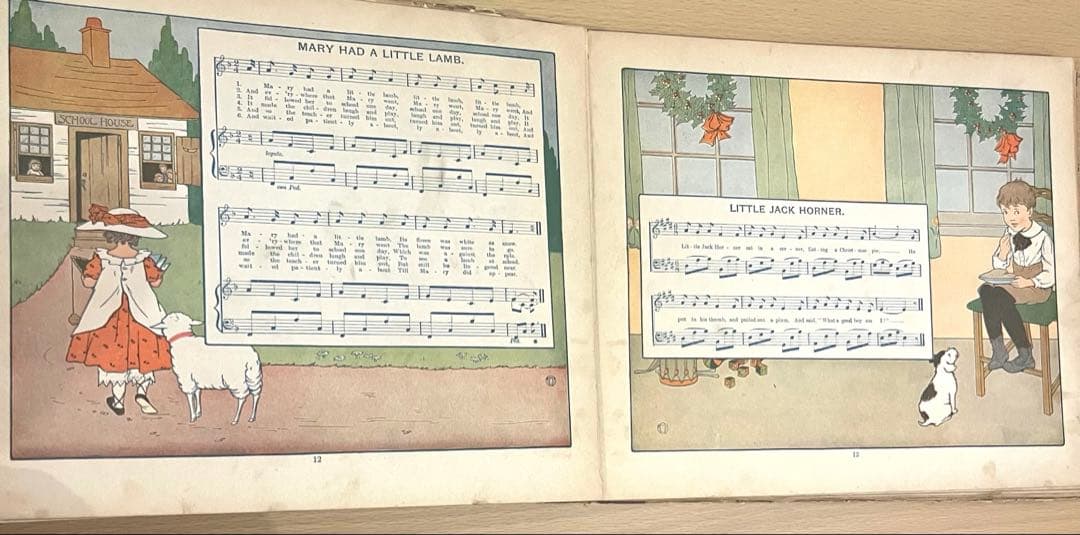 MARY HAD A LITTLE LAMB.
SCHOOL HOUSE
1. Ma - ry had a lit - tle lamb, lit - tle lamb, lit - tle lamb,
2. And ev - 'ry - where that Ma - ry went, Ma - ry went, Ma - ry went, And
3. It fol - lowed her to school one day, school one day, school one day, It
4. It made the chil - dren laugh and play, laugh and play, laugh and play, It
5. And so the teach - er turned him out, turned him out, turned him out, And
6. And wait - ed pa - tient - ly a - bout, ly a - bout, ly a - bout, And
legato.
con Ped.
Ma - ry had a lit - tle lamb, Its fleece was white as snow.
ev - 'ry - where that Ma - ry went The lamb was sure to go.
fol - lowed her to school one day, Which was a - gainst the rule.
made the chil - dren laugh and play, To see a lamb at school.
so the teach - er turned him out, But still he lin - gered near
wait - ed pa - tient - ly a - bout Till Ma - ry did ap - pear.
Ped.
12
LITTLE JACK HORNER.
Lit - tle Jack Hor - ner sat in a cor - ner, Eat - ing a Christ - mas pie, He
put in his thumb, and pulled out a plum, And said, "What a good boy am I!"
13